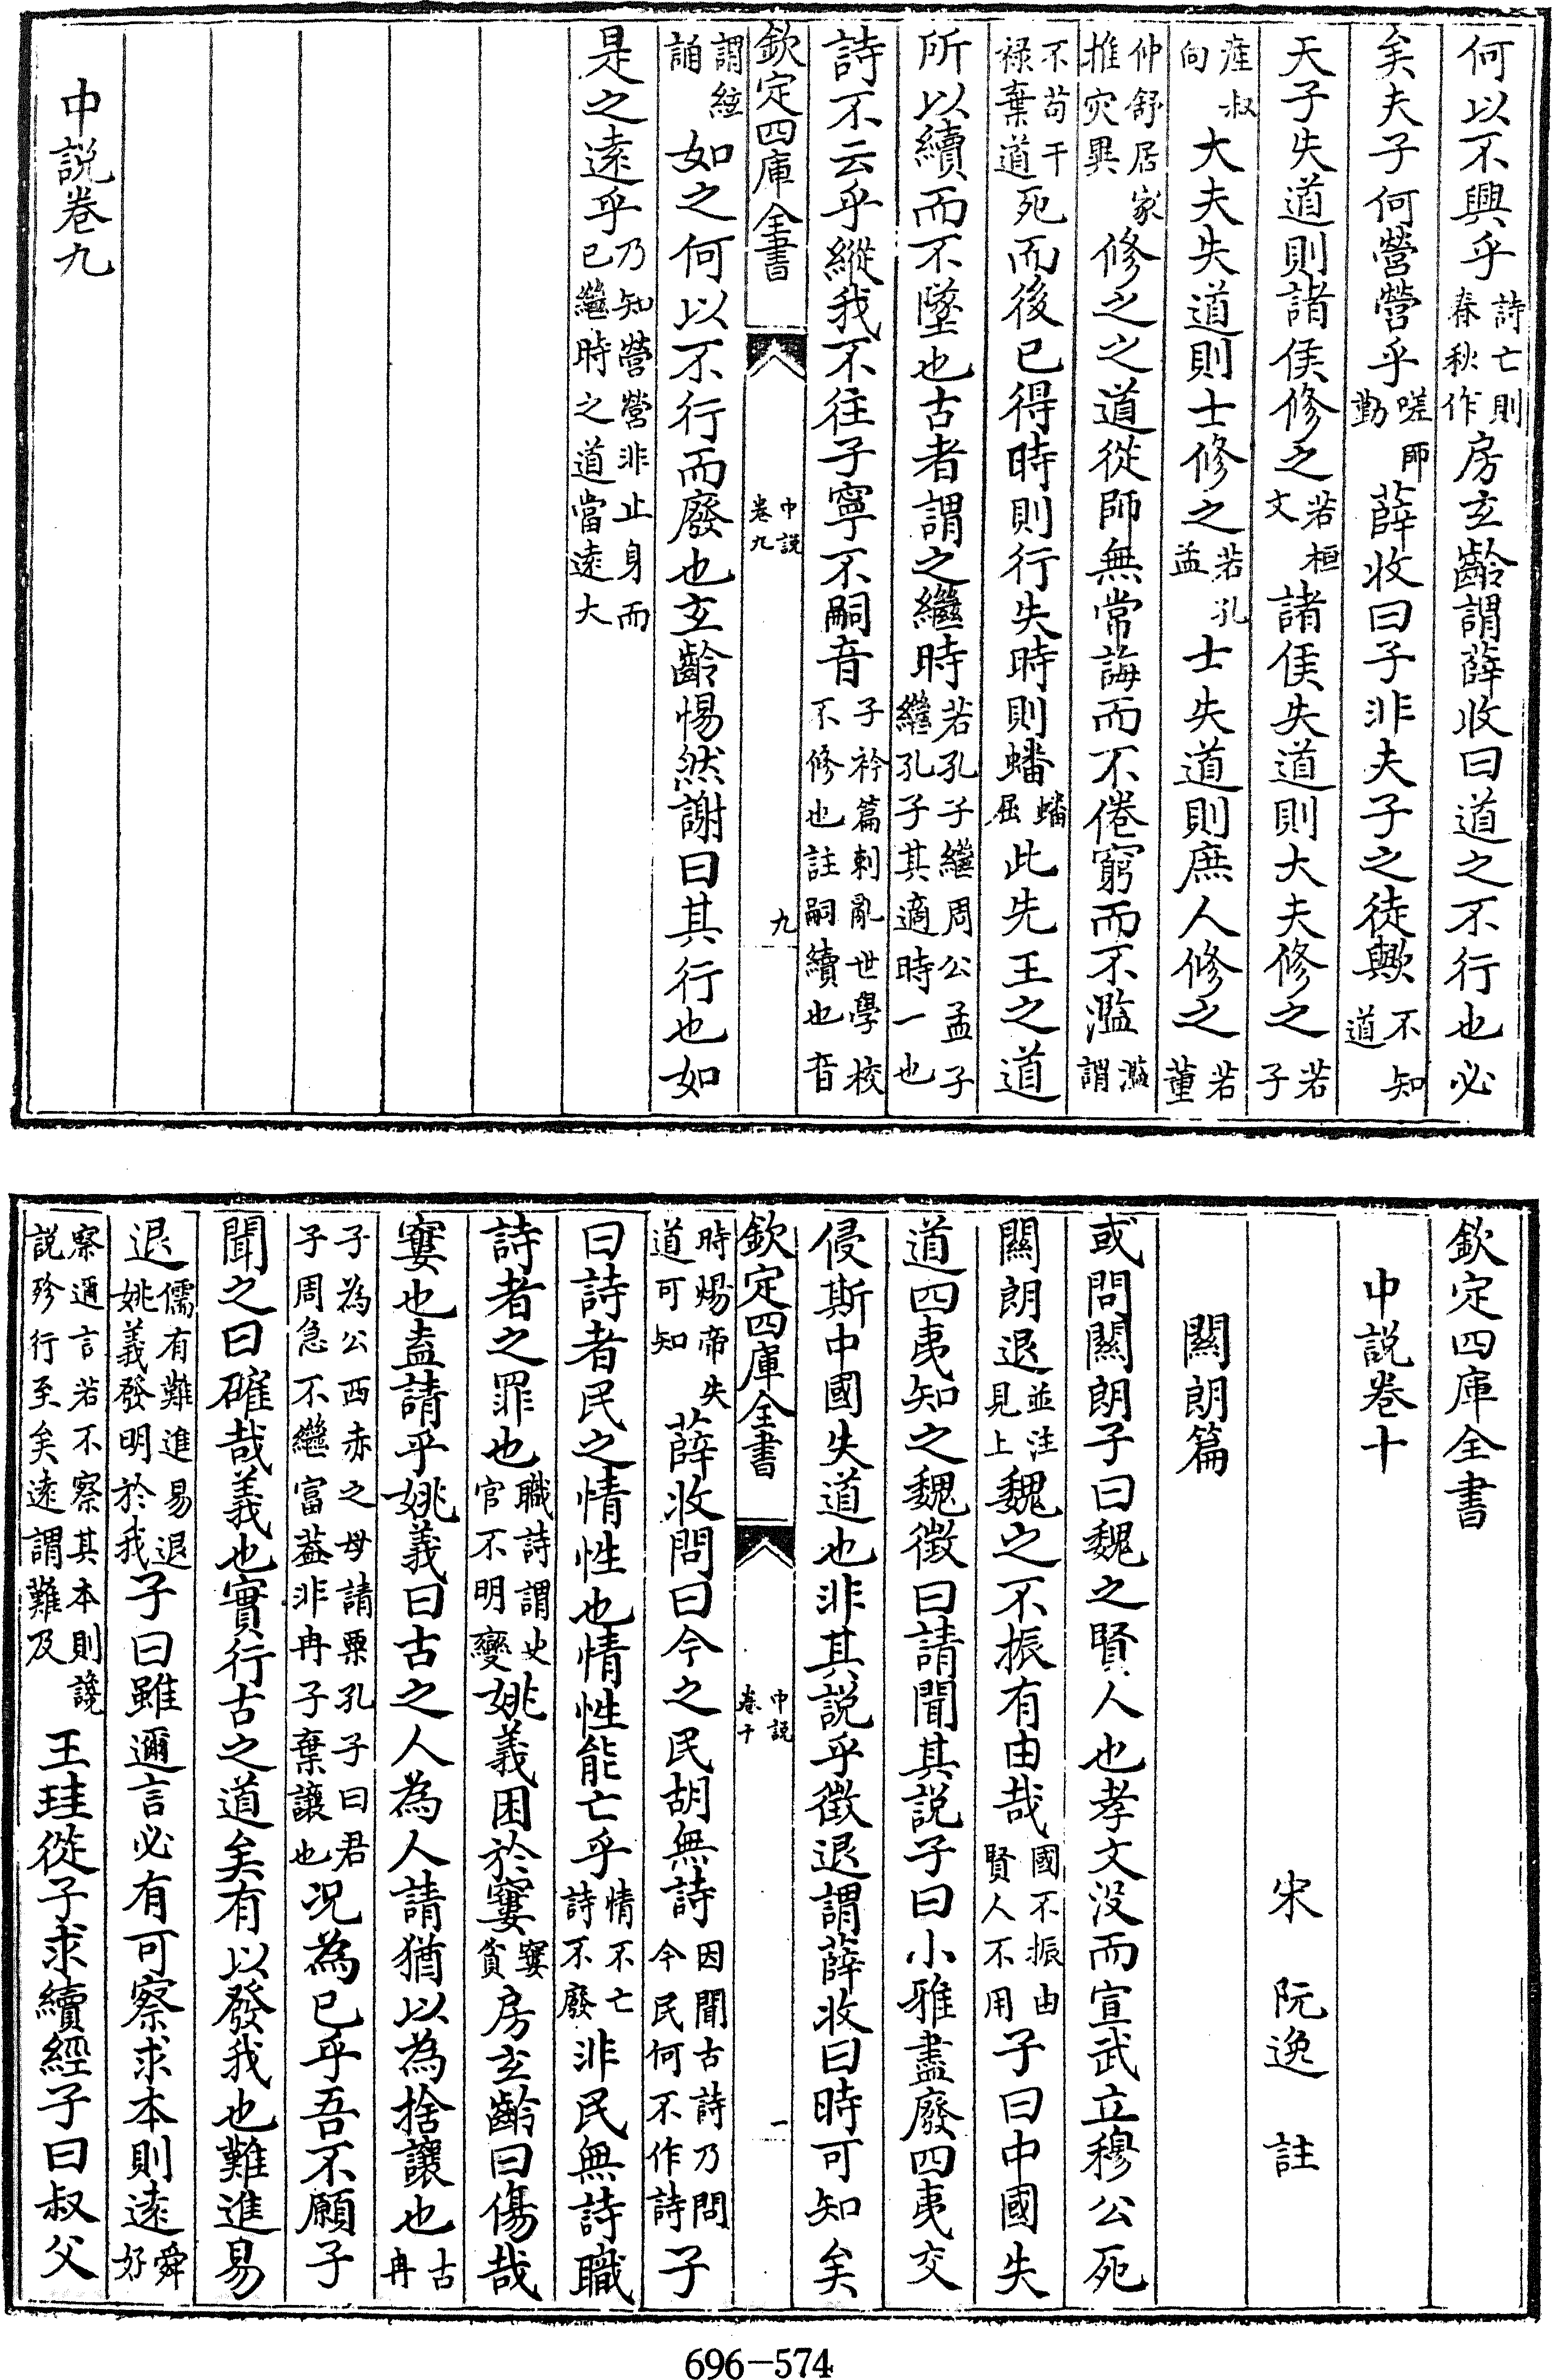 何以不興乎詩亡則春秋作房玄齡謂薛收曰道之不行也必
矣夫子何營營乎嗟師勤薛收曰子非夫子之徒歟不知道
天子失道則諸侯修之若桓文諸侯失道則大夫修之若子
産叔向大夫失道則士修之若孔孟士失道則庶人修之若董
仲舒居家推灾異修之之道從師無常誨而不倦窮而不濫濫謂
不苟干禄棄道死而後已得時則行失時則蟠蟠屈此先王之道
所以續而不墜也古者謂之繼時若孔子繼周公孟子繼孔子其適時一也
詩不云乎縱我不往子寧不嗣音子衿篇刺亂世學校不修也註嗣續也音
欽定四庫全書 中説卷九 九
謂絃誦如之何以不行而廢也玄齡惕然謝曰其行也如
是之遠乎乃知營營非止身而已繼時之道當遠大
中説卷九
欽定四庫全書
中説卷十
宋 阮逸 註
關朗篇
或問關朗子曰魏之賢人也孝文没而宣武立穆公死
關朗退並注見上魏之不振有由哉國不振由賢人不用子曰中國失
道四夷知之魏徵曰請聞其説子曰小雅盡廢四夷交
侵斯中國失道也非其説乎徵退謂薛收曰時可知矣
欽定四庫全書 中説卷十 一
時煬帝失道可知薛收問曰今之民胡無詩因聞古詩乃問今民何不作詩子
曰詩者民之情性也情性能亡乎情不亡詩不廢非民無詩職
詩者之罪也職詩謂史官不明變姚義困於窶窶貧房玄齡曰傷哉
窶也盍請乎姚義曰古之人為人請猶以為捨讓也古冉
子為公西赤之母請粟孔子曰君子周急不繼富葢非冉子棄讓也况為已乎吾不願子
聞之曰確哉義也實行古之道矣有以發我也難進易
退儒有難進易退姚義發明於我子曰雖邇言必有可察求本則遠舜好
察邇言若不察其本則讒説殄行至矣遠謂難及王珪從子求續經子曰叔父
696-574